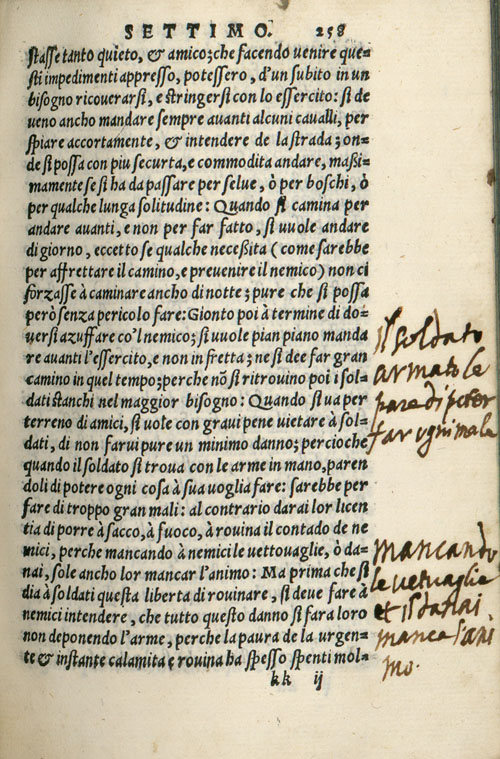 SETTIMO. 258
stasse tanto quieto, & amico; che facendo venire que=
sti impedimenti appresso, potessero, d'un subito in un
bisogno ricouerarsi, e stringersi con lo essercito: si de
ueno ancho mandare sempre auanti alcuni caualli, per
spiare accortamente, & intendere de la strada; on=
de si possa con piu securta, e commodita andare, maßi=
mamente se si ha da passare per selue, ò per boschi, ò
per qualche lunga solitudine: Quando si camina per
andare auanti, e non per far fatto, si uuole andare
di giorno, eccetto se qualche neceßita (come sarebbe
per affrettare il camino, e preuenire il nemico) non ci
forzasse à caminare ancho di notte; pure che si possa
però senza pericolo fare: Gionto poi à termine di do=
uersi azuffare co'l nemico; si uuole pian piano manda
re auanti l'essercito, e non in fretta; ne si dee far gran
camino in quel tempo; perche nõ si ritrouino poi i sol=
dati stanchi nel maggior bisogno: Quando si ua per
terreno di amici, si uole con graui pene uietare à sol=
dati, di non farui pure un minimo danno; percioche
quando il soldato si troua con le arme in mano, paren
doli di potere ogni cosa à sua uoglia fare: sarebbe per
fare di troppo gran mali: al contrario darai lor licen
tia di porre à sacco, à fuoco, à rouina il contado de ne
mici, perche mancando à nemici le uettouaglie, ò da=
nai, sole ancho lor mancar l'animo: Ma prima che si
dia à soldati questa liberta di rouinare, si deue fare à
nemici intendere, che tutto questo danno si fara loro
non deponendo l'arme, perche la paura de la urgen=
te & instante calamita e rouina ha spesso spenti mol=
kk ij
il soldato
armato le
pare di poter
far ogni male
mancando
le vetuaglie
et il danai
manca l'ani
mo.